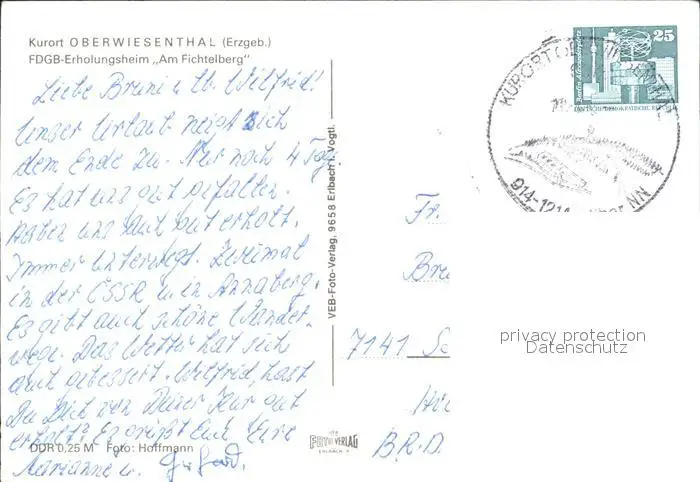 Kurort OBERWIESENTHAL (Erzgeb.)
FDGB-Erholungsheim „Am Fichtelberg"
Liebe Bruni u. lb. Wilfrid!
Unser Urlaub neigt sich
dem Ende zu. Nur noch 4 Tage.
Es hat uns gut gefallen.
Haben uns auch gut erholt.
Immer unterwegs. Zweimal
in der ČSSR u. in Annaberg.
Es gibt auch schöne Wander-
wege. Das Wetter hat sich
auch gebessert. Wilfrid, hast
Du Dich von Deiner Kur gut
erholt? Es grüßt Euch Eure
Marianne u. Gerhard.
DDR 0,25 M Foto: Hoffmann
VEB-Foto-Verlag, 9658 Erlbach i. Vogtl.
FOTO VERLAG
ERLBACH V
25
Berlin, Alexanderplatz
DEUTSCHE DEMOKRATISCHE REPUBLIK
KURORT OBERWIESENTHAL
914-1214 über NN
Fr.
7141
B.R.D.
privacy protection
Datenschutz